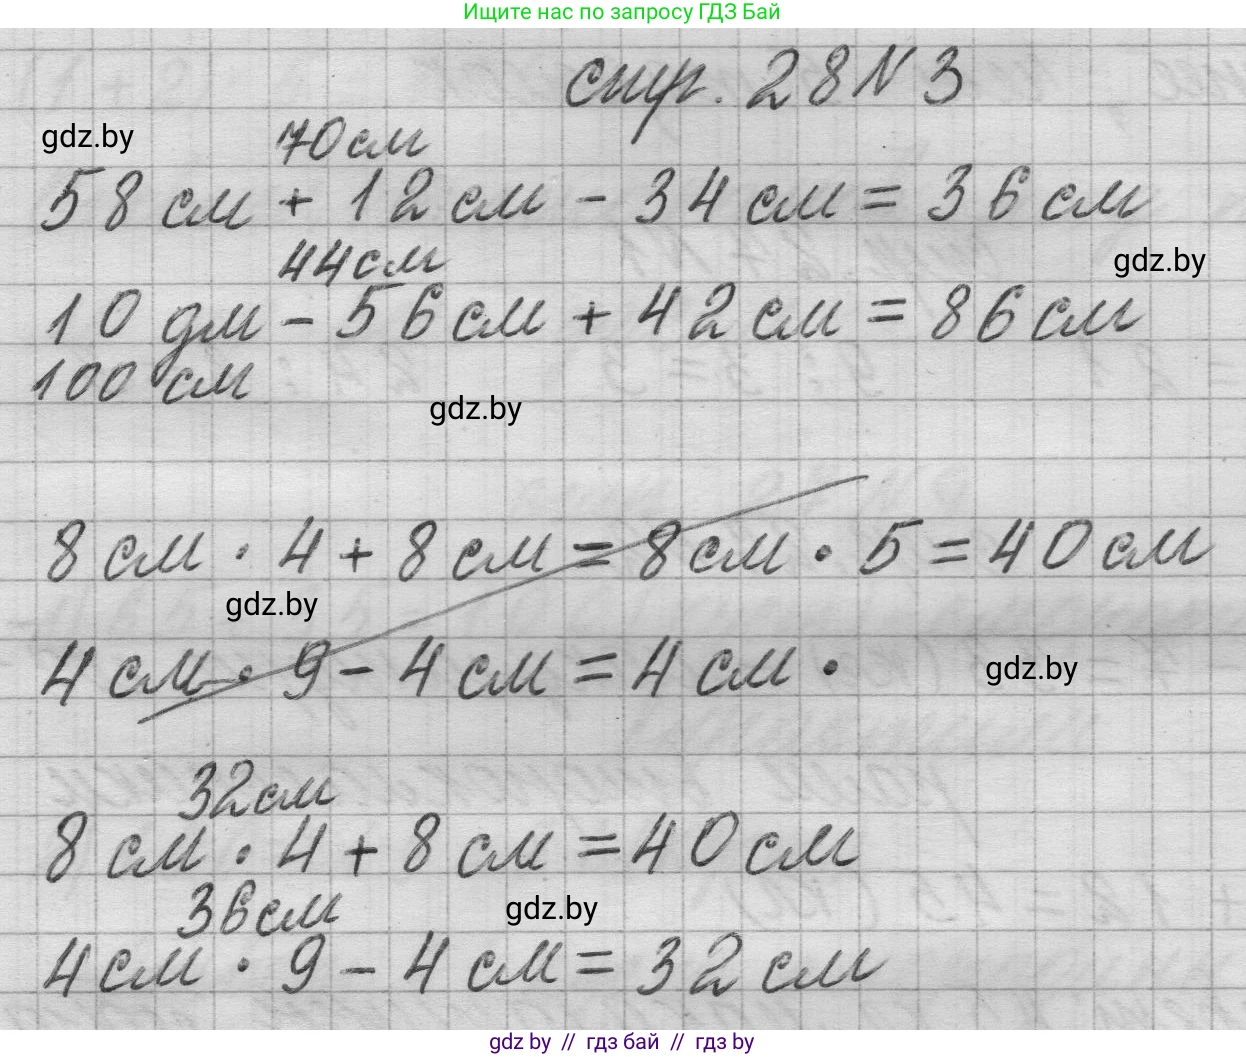 Ищите нас по запросу ГДЗ Бай
стр. 28 № 3
gdz.by
70 см
58 см + 12 см - 34 см = 36 см
44 см
gdz.by
10 дм - 56 см + 42 см = 86 см
100 см
gdz.by
8 см · 4 + 8 см = 8 см · 5 = 40 см
gdz.by
4 см · 9 - 4 см = 4 см ·
gdz.by
32 см
8 см · 4 + 8 см = 40 см
36 см
gdz.by
4 см · 9 - 4 см = 32 см
gdz.by // гдз бай // гдз by